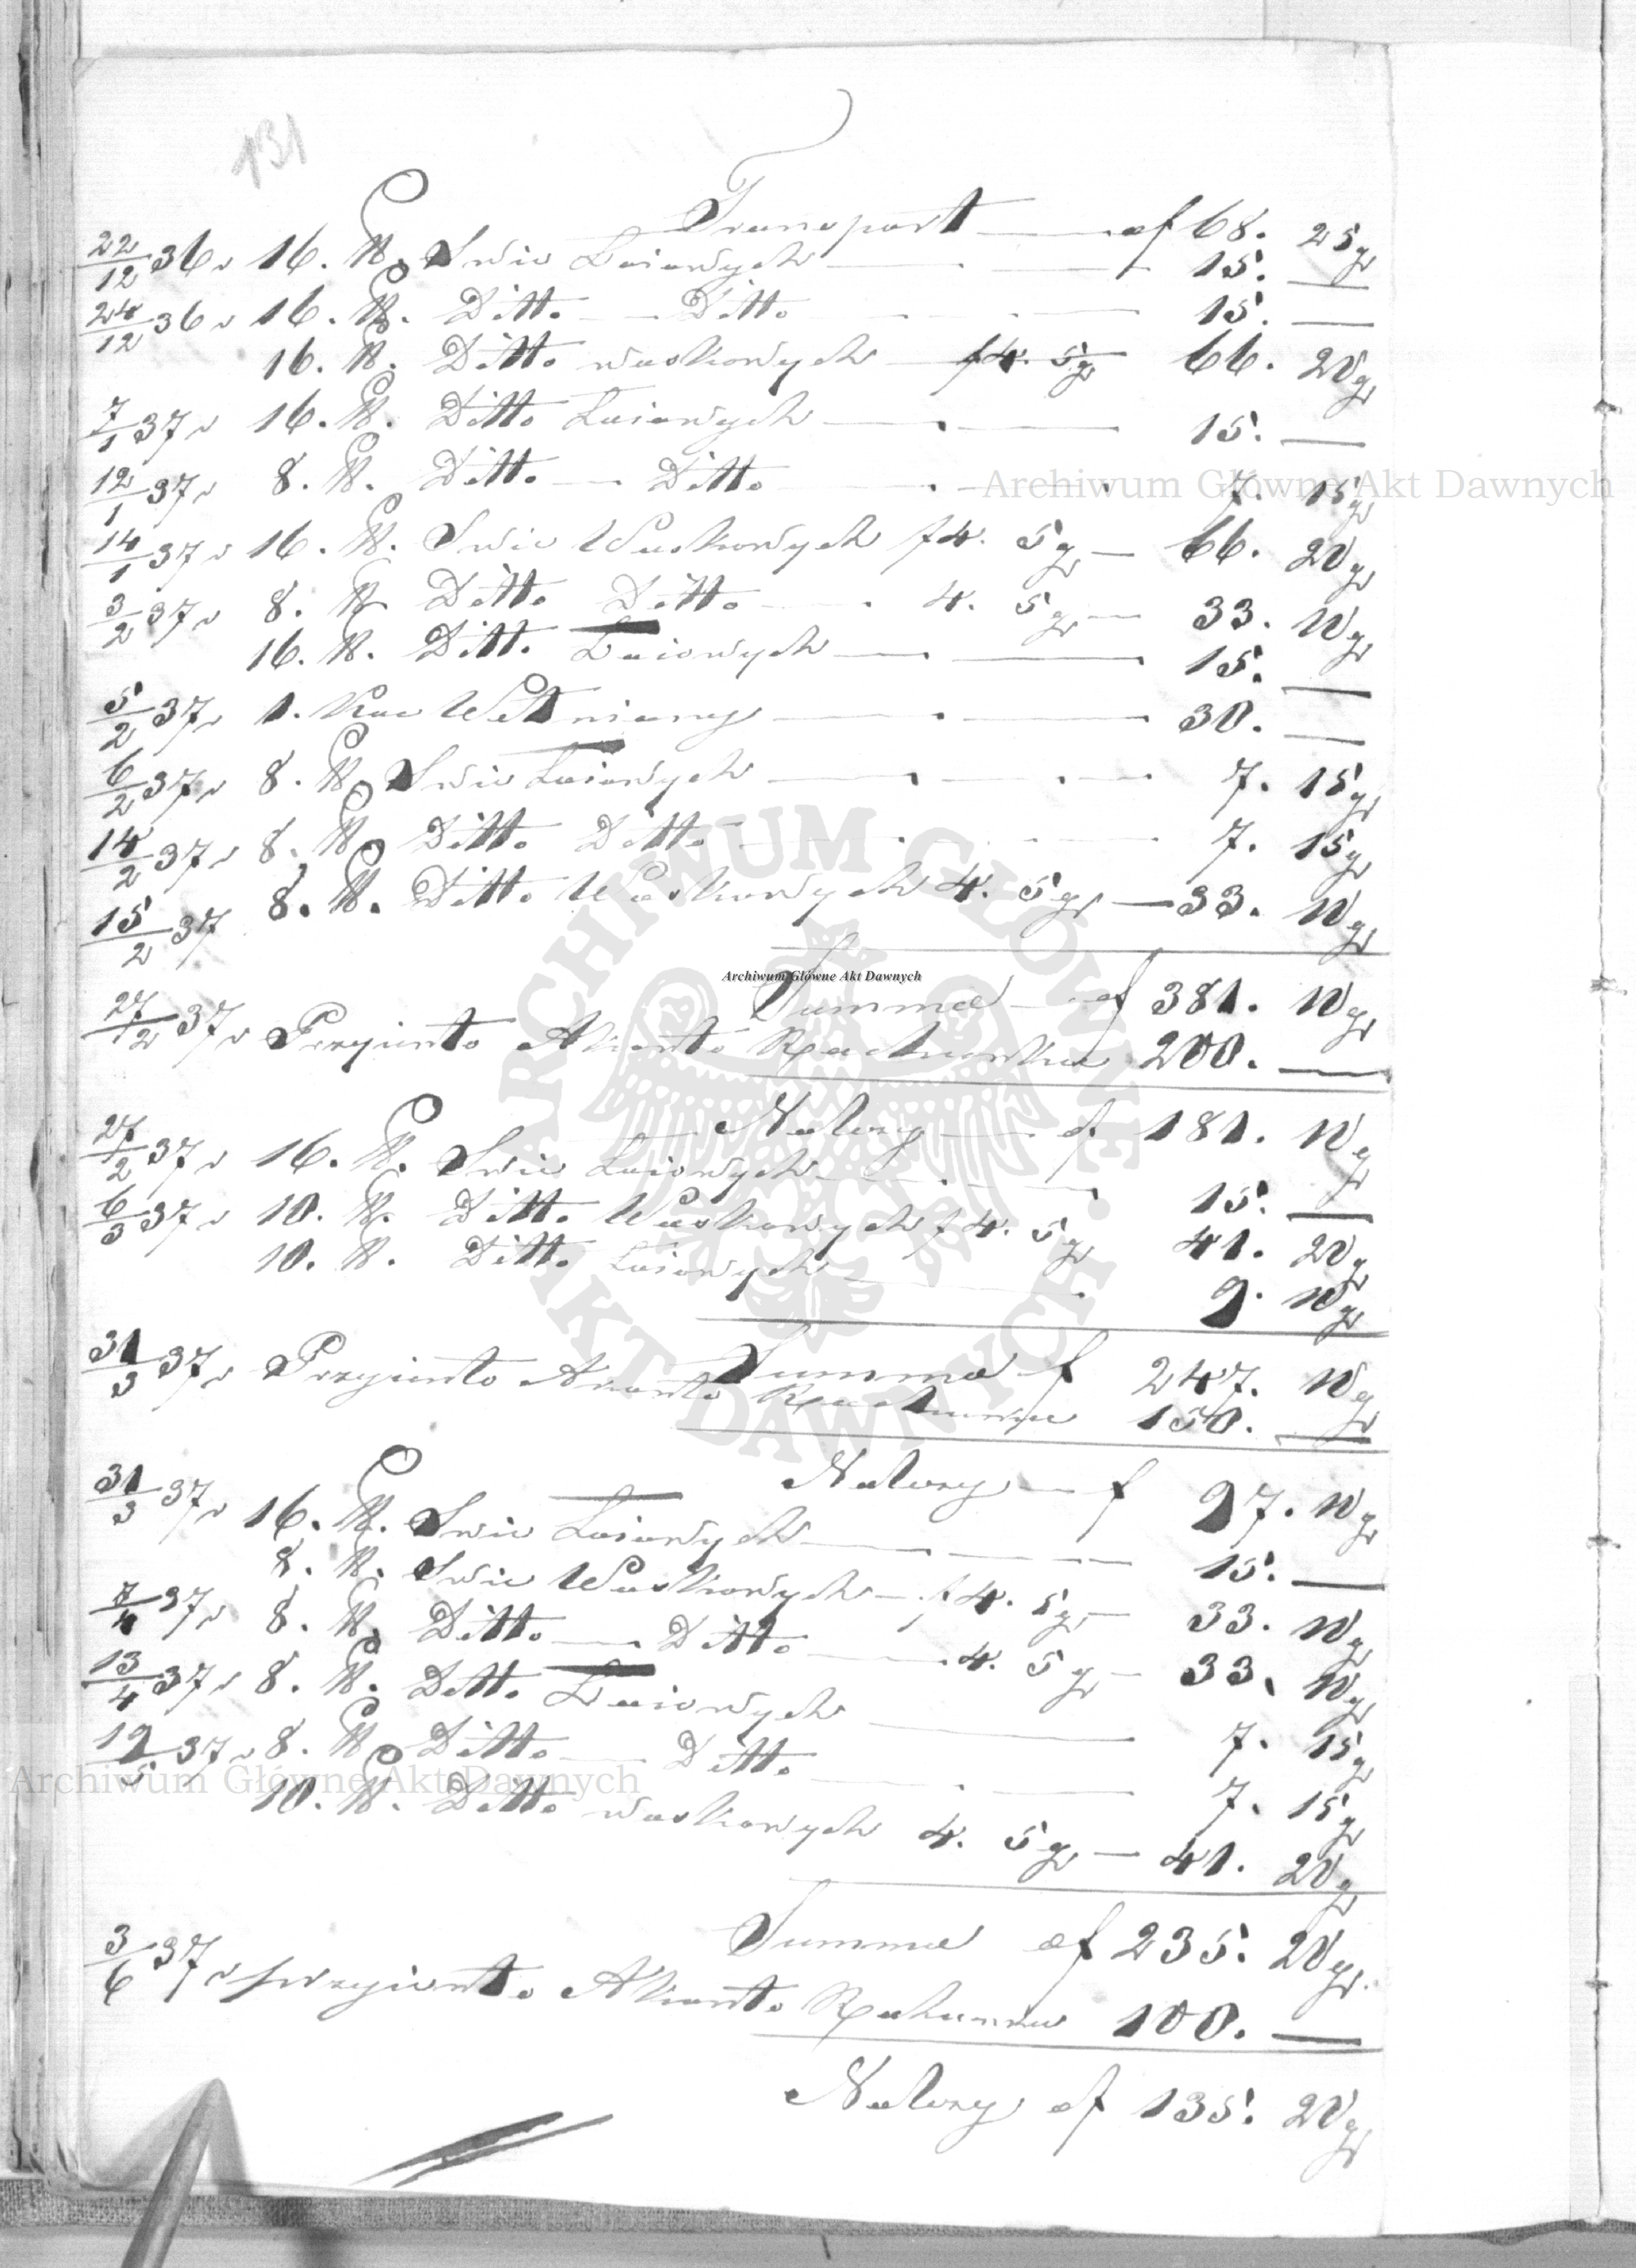 131
Transport — f 68. 25 gr
22/12 36 r 16. ℔. Swic Loiowych — 15. —
24/12 36 r 16. ℔. Ditto — Ditto — 15. —
16. ℔. Ditto woskowych — f 4. 5 gr 66. 20 gr
7/1 37 r 16. ℔. Ditto Loiowych — 15. —
12/1 37 r 8. ℔. Ditto — Ditto — 7. 15 gr
Archiwum Główne Akt Dawnych
14/1 37 r 16. ℔. Swic Woskowych f 4. 5 gr — 66. 20 gr
3/2 37 r 8. ℔. Ditto Ditto — 4. 5 gr — 33. 10 gr
16. ℔. Ditto Loiowych — 15. —
5/2 37 r 1. Koc Wełniany — 30. —
6/2 37 r 8. ℔. Swic Loiowych — 7. 15 gr
14/2 37 r 8. ℔. Ditto Ditto — 7. 15 gr
15/2 37 8. ℔. Ditto Woskowych 4. 5 gr — 33. 10 gr
Archiwum Główne Akt Dawnych
Summa — f 381. 10 gr
27/2 37 r Przyiento Akonto Rachunku 200. —
Nalezy — f 181. 10 gr
27/2 37 r 16. ℔. Swic Loiowych — 15. —
6/3 37 r 10. ℔. Ditto Woskowych f 4. 5 gr 41. 20 gr
10. ℔. Ditto Loiowych — 9. 10 gr
Summa f 247. 10 gr
31/3 37 r Przyiento Akonto Rachunku 150. —
Nalezy — f 97. 10 gr
31/3 37 r 16. ℔. Swic Loiowych — 15. —
8. ℔. Swic Woskowych — f 4. 5 gr — 33. 10 gr
7/4 37 r 8. ℔. Ditto — Ditto — 4. 5 gr — 33. 10 gr
13/4 37 r 8. ℔. Ditto Loiowych — 7. 15 gr
19/5 37 r 8. ℔. Ditto — Ditto — 7. 15 gr
Archiwum Główne Akt Dawnych
10. ℔. Ditto woskowych 4. 5 gr — 41. 20 gr
Summa f 235. 20 gr.
3/6 37 r przyiento Akonto Rachunku 100. —
Nalezy f 135. 20 gr
ARCHIWUM GŁÓWNE · AKT DAWNYCH ·